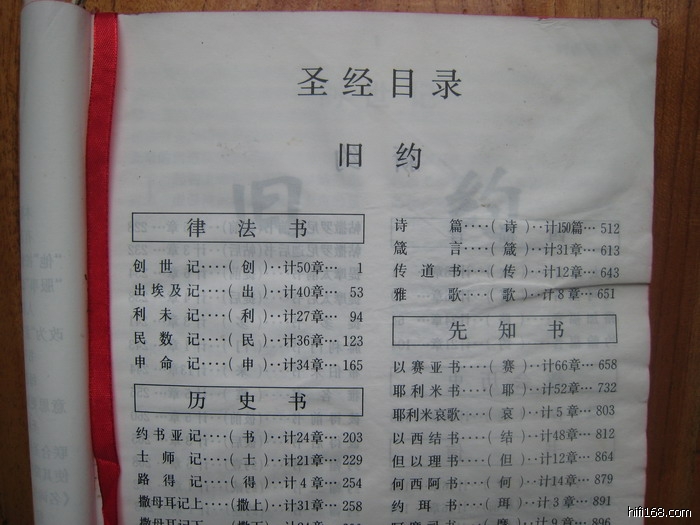 圣经目录
旧约
律法书
创世记····(创)··计50章··· 1
出埃及记····(出)··计40章··· 53
利未记····(利)··计27章··· 94
民数记····(民)··计36章···123
申命记····(申)··计34章···165
历史书
约书亚记····(书)··计24章···203
士师记····(士)··计21章···229
路得记····(得)··计4章···254
撒母耳记上···(撒上)··计31章···258
诗篇····(诗)··计150篇···512
箴言····(箴)··计31章···613
传道书····(传)··计12章···643
雅歌····(歌)··计8章···651
先知书
以赛亚书····(赛)··计66章···658
耶利米书····(耶)··计52章···732
耶利米哀歌···(哀)··计5章···803
以西结书····(结)··计48章···812
但以理书····(但)··计12章···864
何西阿书····(何)··计14章···879
约珥书····(珥)··计3章···891
hifi168.com